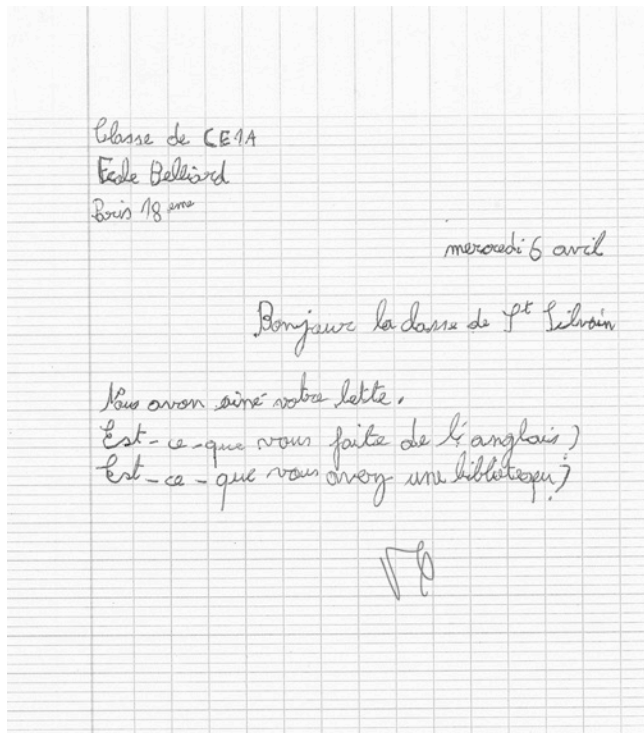 Classe de CE1A
École Belliard
Paris 18 eme
mercredi 6 avril
Bonjour la classe de St Silvain
Nous avon aimé votre lette.
Est-ce-que vous faite de l'anglais ?
Est-ce-que vous avez une bibliotequ ?